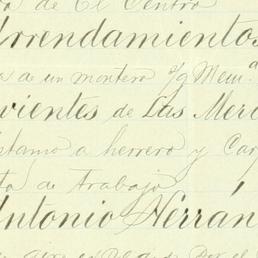 de El Centro
Arrendamientos
a de un montero
vientes de Las Merc
stamo a herrero y Car
ta de Trabajo
Antonio Herrán